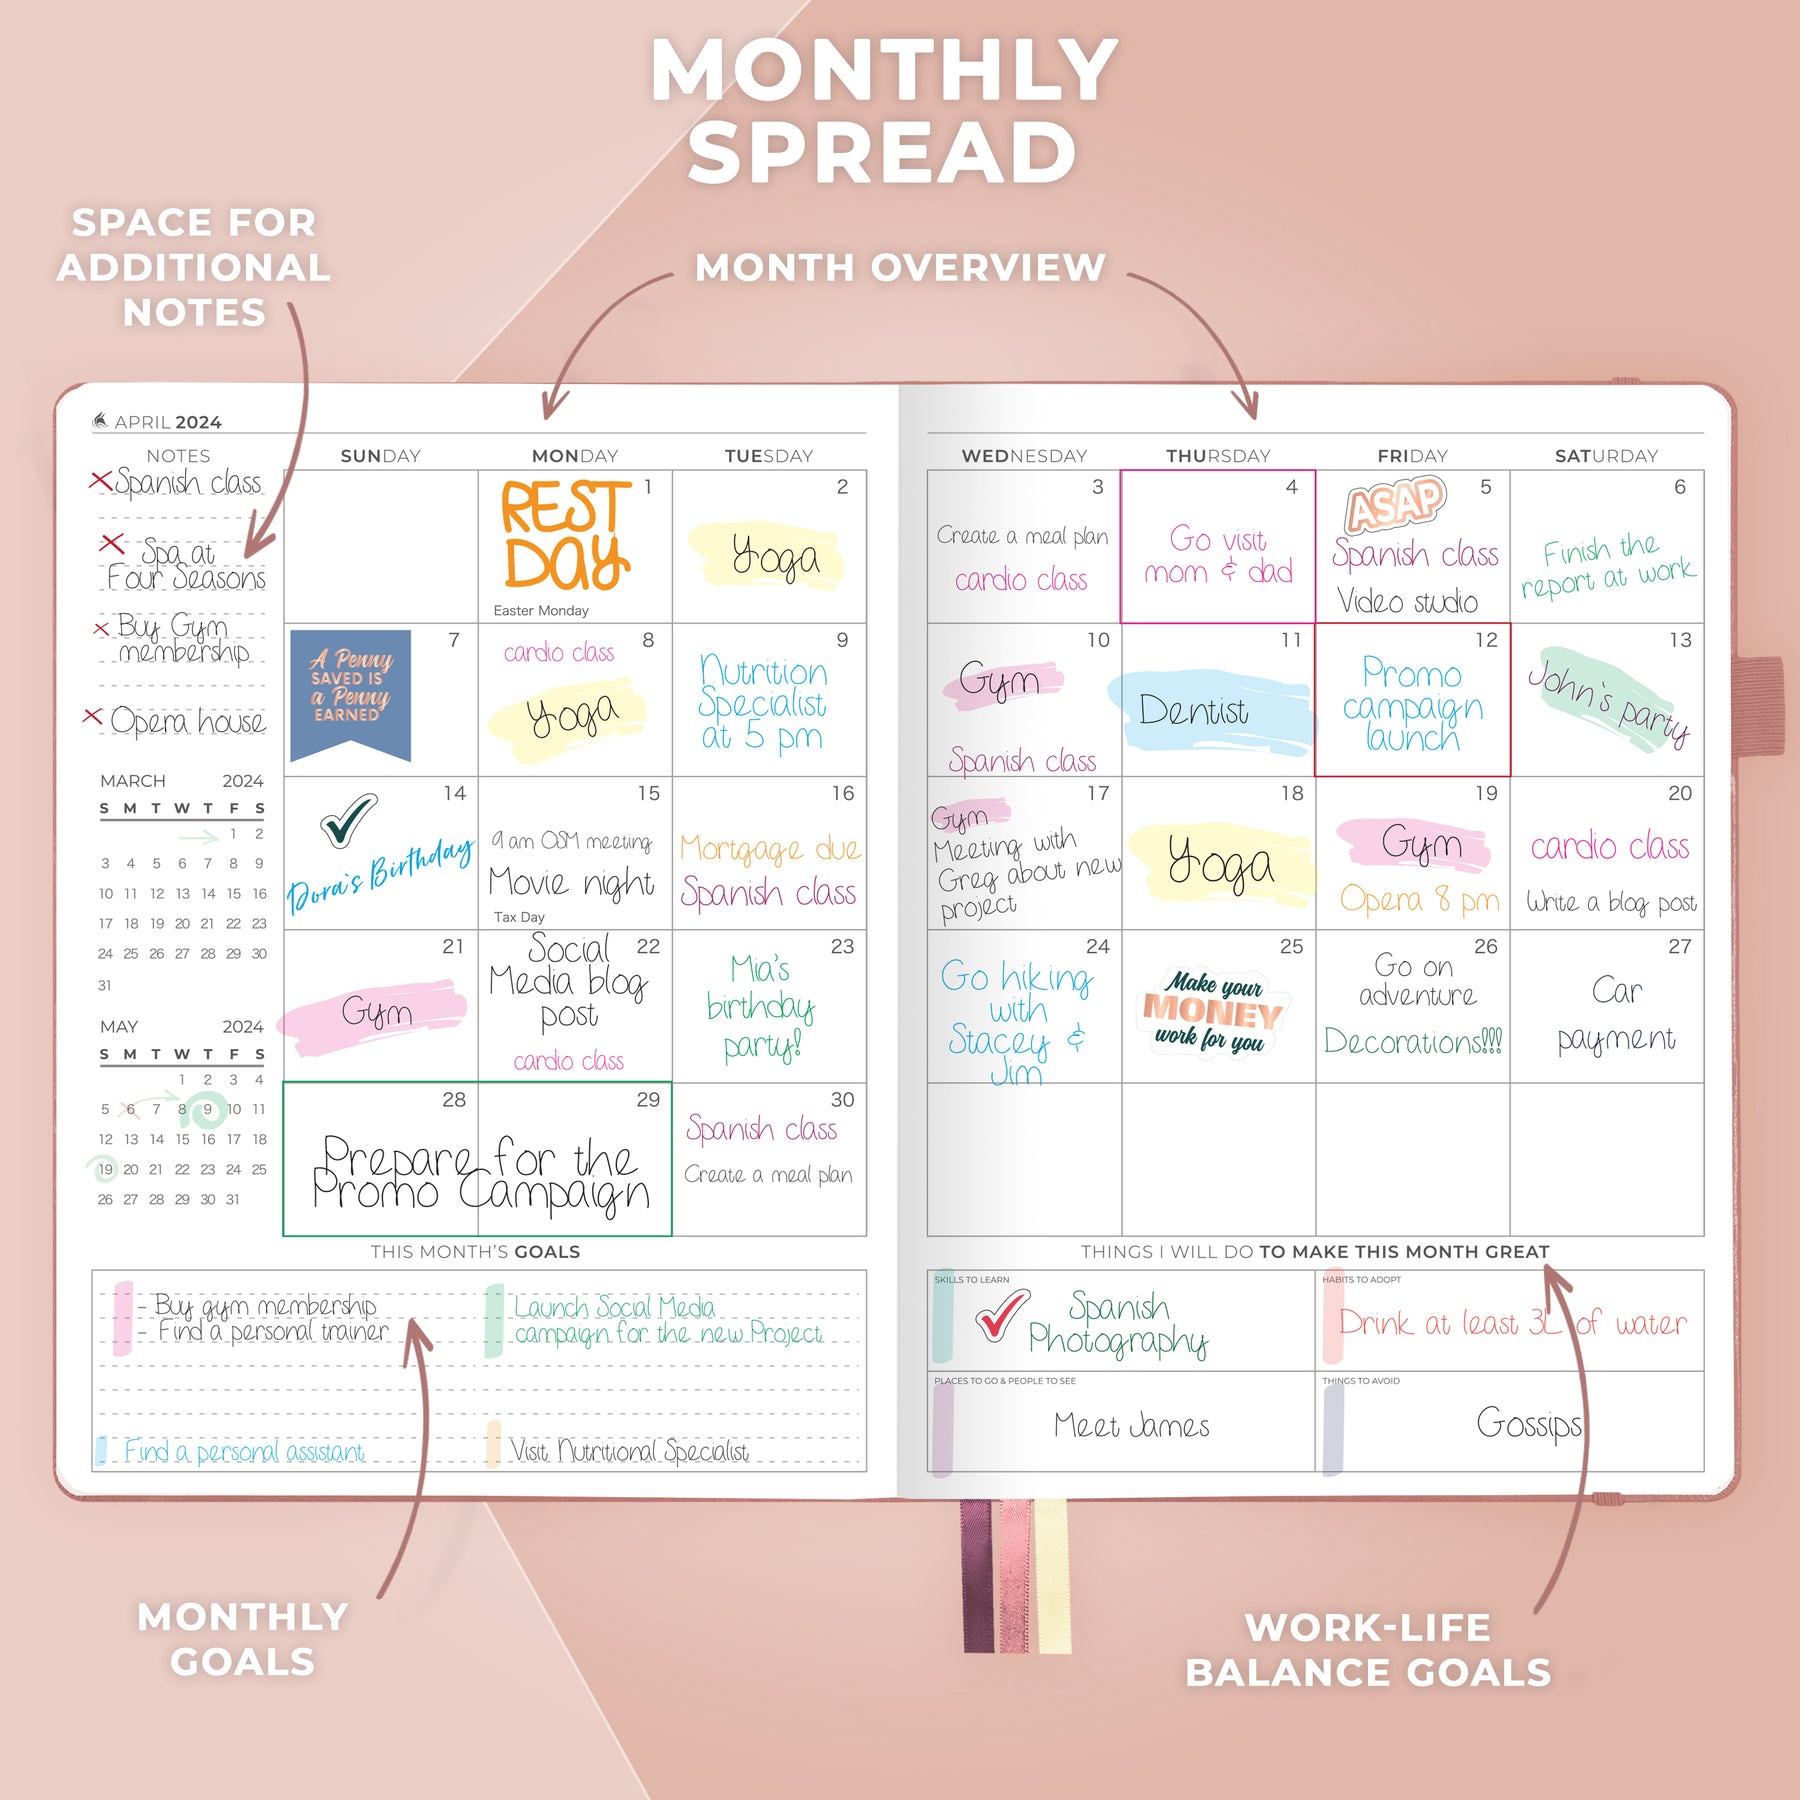 MONTHLY
SPREAD
SPACE FOR
ADDITIONAL
NOTES
MONTH OVERVIEW
APRIL 2024
NOTES
Spanish class
Spa at
Four Seasons
Buy Gym
membership
Opera house
MARCH 2024
S M T W T F S
1 2
3 4 5 6 7 8 9
10 11 12 13 14 15 16
17 18 19 20 21 22 23
24 25 26 27 28 29 30
31
MAY 2024
S M T W T F S
1 2 3 4
5 6 7 8 9 10 11
12 13 14 15 16 17 18
19 20 21 22 23 24 25
26 27 28 29 30 31
SUNDAY MONDAY TUESDAY
1
REST
DAY
Easter Monday
2
Yoga
7
A Penny
SAVED IS
a Penny
EARNED
8
cardio class
Yoga
9
Nutrition
Specialist
at 5 pm
14
Dora's Birthday
15
9 am OSM meeting
Movie night
Tax Day
16
Mortgage due
Spanish class
21
Gym
22
Social
Media blog
post
cardio class
23
Mia's
birthday
party!
28 29
Prepare for the
Promo Campaign
30
Spanish class
Create a meal plan
THIS MONTH'S GOALS
- Buy gym membership
- Find a personal trainer
Launch Social Media
campaign for the new Project
Find a personal assistant
Visit Nutritional Specialist
WEDNESDAY THURSDAY FRIDAY SATURDAY
3
Create a meal plan
cardio class
4
Go visit
mom & dad
5
ASAP
Spanish class
Video studio
6
Finish the
report at work
10
Gym
Spanish class
11
Dentist
12
Promo
campaign
launch
13
John's party
17
Gym
Meeting with
Greg about new
project
18
Yoga
19
Gym
Opera 8 pm
20
cardio class
Write a blog post
24
Go hiking
with
Stacey &
Jim
25
Make your
MONEY
work for you
26
Go on
adventure
Decorations!!!!
27
Car
payment
THINGS I WILL DO TO MAKE THIS MONTH GREAT
SKILLS TO LEARN
Spanish
Photography
HABITS TO ADOPT
Drink at least 3L of water
PLACES TO GO & PEOPLE TO SEE
Meet James
THINGS TO AVOID
Gossips
MONTHLY
GOALS
WORK-LIFE
BALANCE GOALS